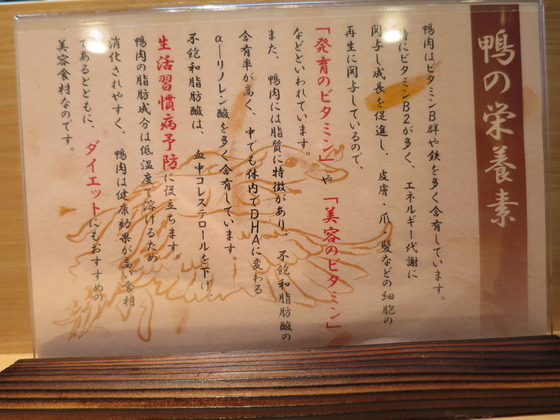 鴨の栄養素
鴨肉はビタミンB群や鉄を多く含有しています。
特にビタミンB2が多く、エネルギー代謝に
関与し成長を促進し、皮膚・爪・髪などの細胞の
再生に関与しているので、
「発育のビタミン」や「美容のビタミン」
などといわれています。
また、鴨肉には脂質に特徴があり、不飽和脂肪酸の
含有率が高く、中でも体内でDHAに変わる
α―リノレン酸を多く含有しています。
不飽和脂肪酸は、血中コレステロールを下げ
生活習慣病予防に役立ちます。
鴨肉の脂肪成分は低温度で溶けるため
消化されやすく、鴨肉は健康効果が高い食材
であるとともに、ダイエットにもおすすめの
美容食材なのです。